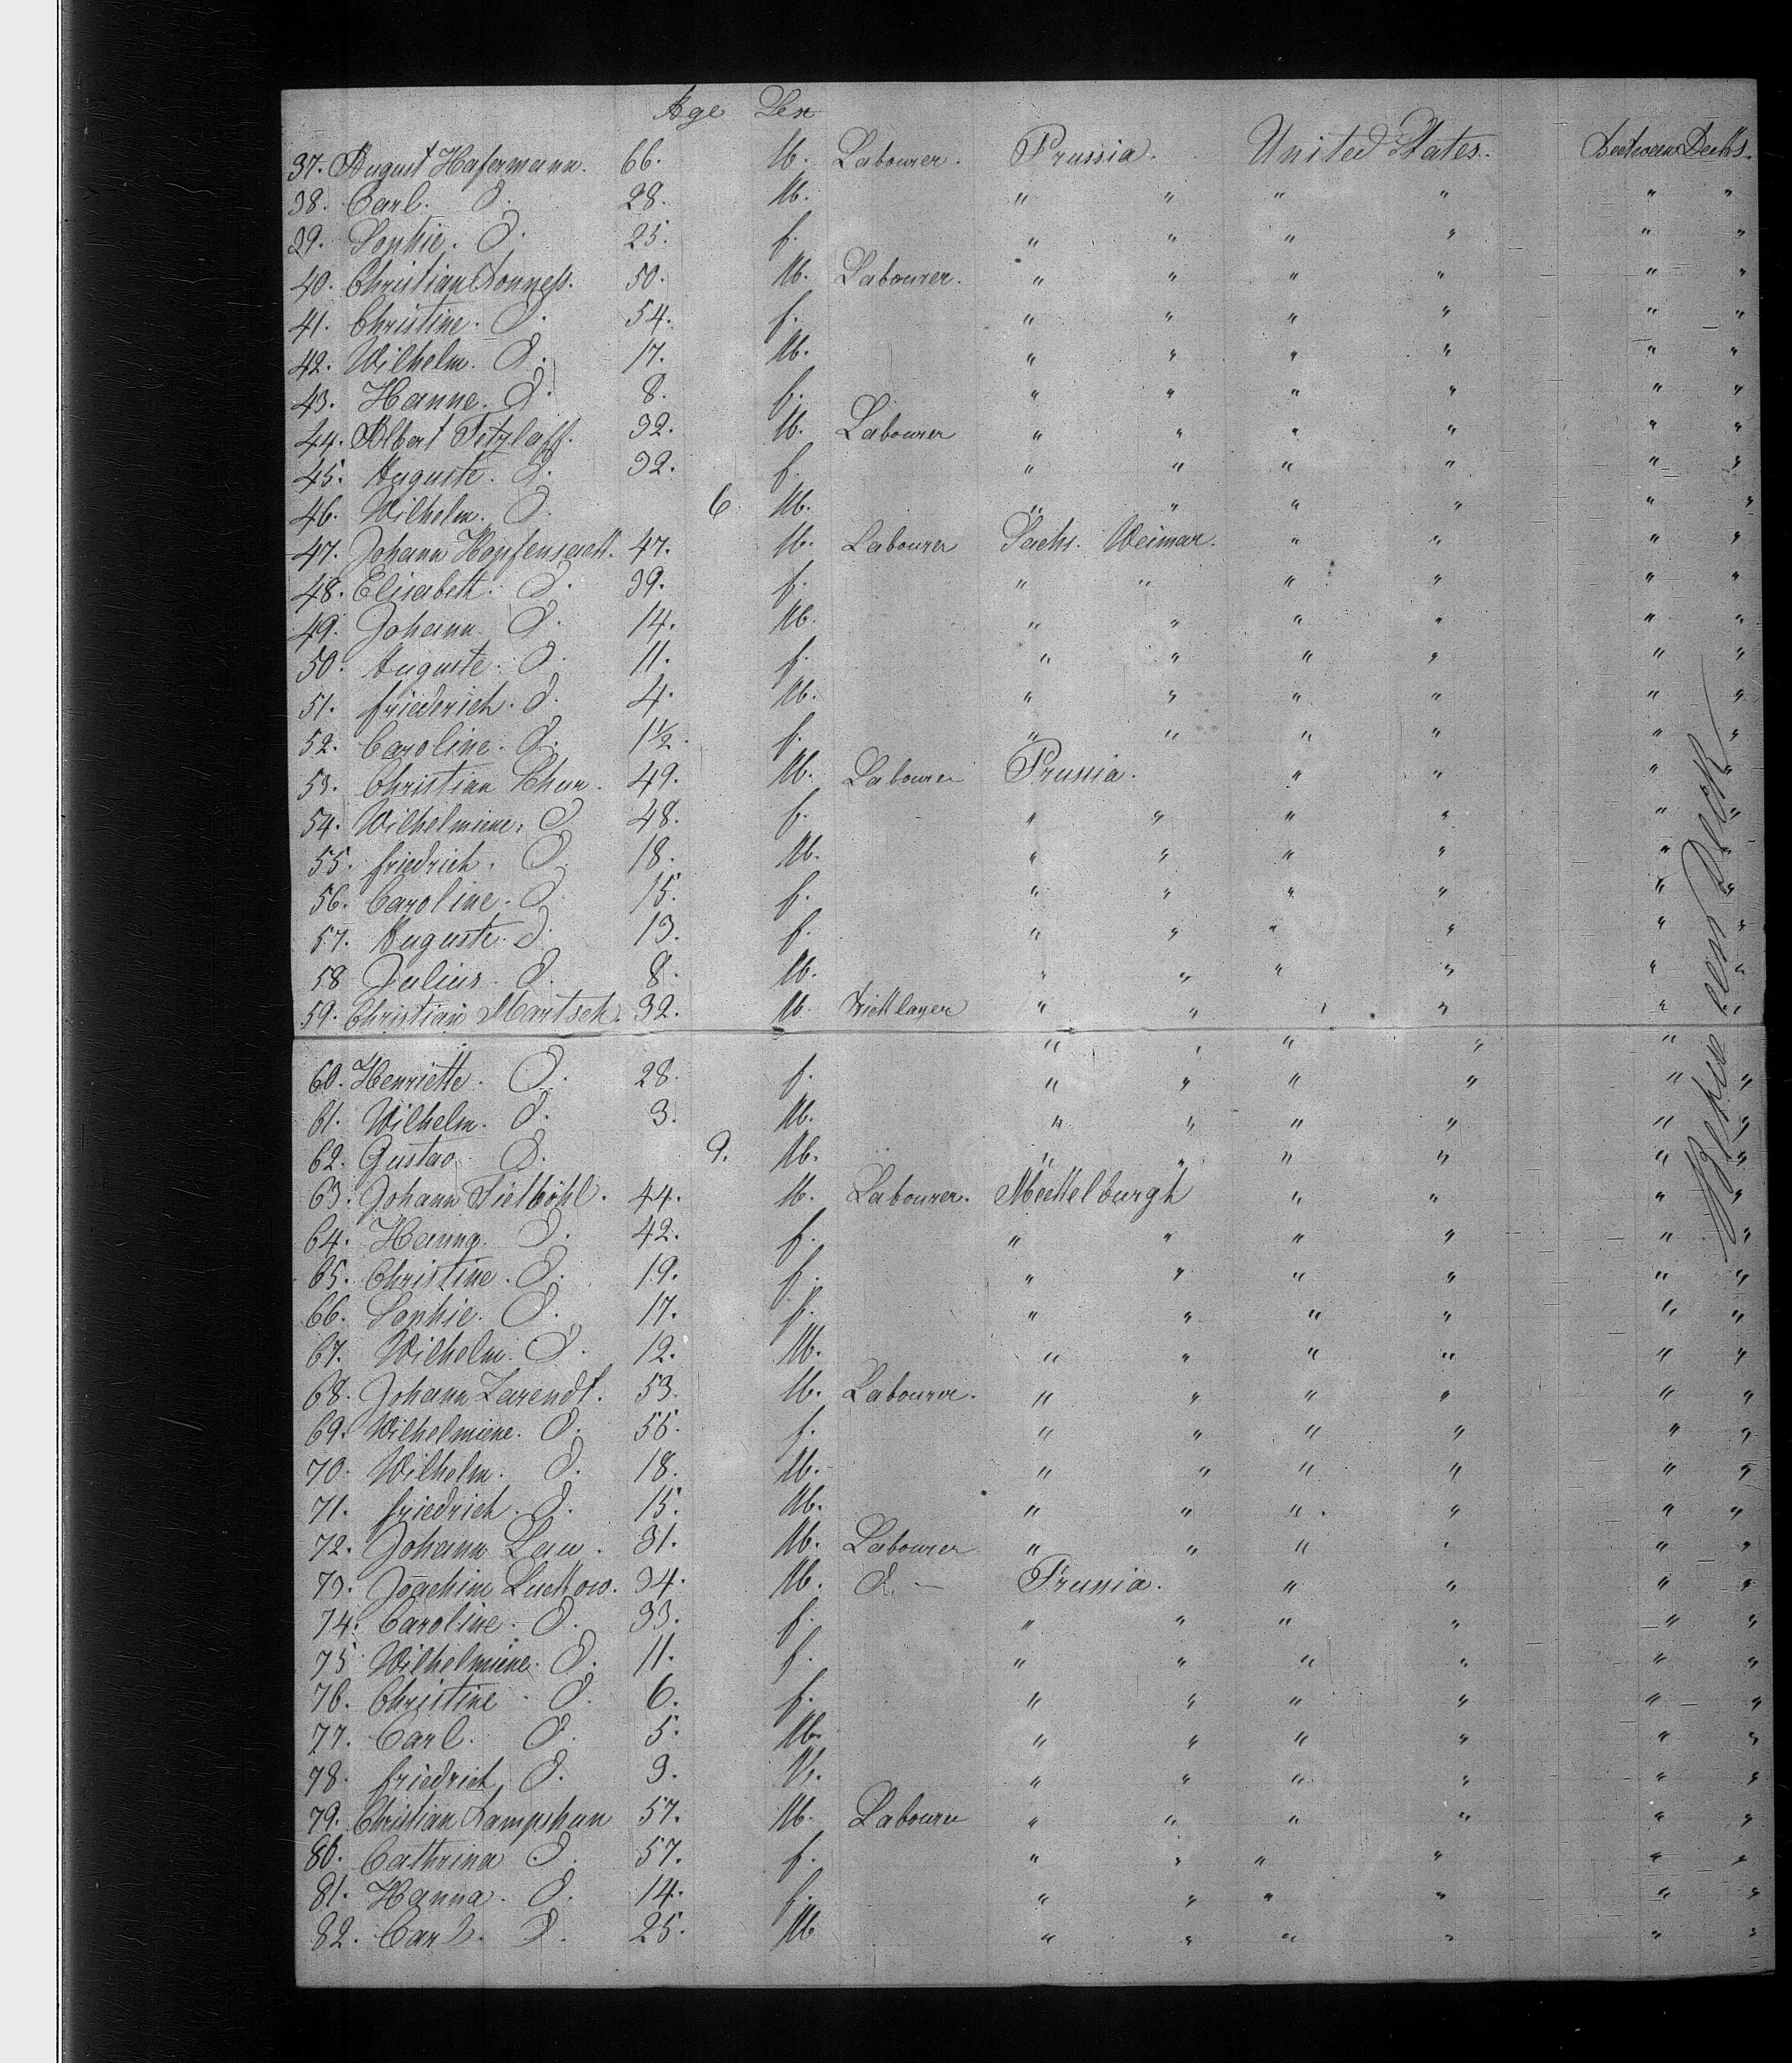 Age Sex
37. August Hafermann. 66. M. Labourer. Prussia. United States. Between Decks.
38. Carl. d. 28. M. " " " " " "
39. Sophie. d. 25. f. " " " " " "
40. Christian Donness. 50. M. Labourer. " " " " " "
41. Christine. d. 54. f. " " " " " "
42. Wilhelm. d. 17. M. " " " " " "
43. Hanne. d. 8. f. " " " " " "
44. Albert Tetzlaff. 32. M. Labourer " " " " " "
45. Auguste. d. 32. f. " " " " " "
46. Wilhelm. d. 6 M. " " " " " "
47. Johann Hopfensack. 47. M. Labourer Sachs. Weimar. " " " "
48. Elisabeth. d. 39. f. " " " " " "
49. Johann. d. 14. M. " " " " " "
50. Auguste. d. 11. f. " " " " " "
51. friederich. d. 4. M. " " " " " "
52. Caroline. d. 1½. f. " " " " " "
53. Christian Chur. 49. M. Labourer Prussia. " " " "
54. Wilhelmine. d 48. f. " " " " " "
55. friedrich. d. 18. M. " " " " " "
56. Caroline. d. 15. f. " " " " " "
57. Auguste. d. 13. f. " " " " " "
58 Julius. d. 8. M. " " " " " "
59. Christian Martsch. 32. M. Bricklayer " " " " " "
" " " " "
60. Henriette. d. 28. f. " " " " " "
61. Wilhelm. d. 3. M. " " " " " "
62. Gustav. d. 9. M. " " " " " "
63. Johann Fietböhl. 44. M. Labourer. Mecklelburgh " " " "
64. Hanna. d. 42. f. " " " " " "
65. Christine. d. 19. f. " " " " " "
66. Sophie. d. 17. f. " " " " " "
67. Wilhelm. d. 12. M. " " " " " "
68. Johann Zarendt. 53. M. Labourer. " " " " " "
69. Wilhelmine. d. 55. f. " " " " " "
70. Wilhelm. d. 18. M. " " " " " "
71. friedrich. d. 15. M. " " " " " "
72. Johann Lau. 31. M. Labourer " " " " " "
73. Joachim Luckow. 34. M. d. — Prussia. " " " "
74. Caroline. d. 33. f. " " " " " "
75 Wilhelmine. d. 11. f. " " " " " "
76. Christine. d. 6. f. " " " " " "
77. Carl. d. 5. M. " " " " " "
78. friedrich, d. 3. M. " " " " " "
79. Christian Lampshun 57. M. Labourer " " " " " "
80. Cathrina d. 57. f. " " " " " "
81. Hanna. d. 14. f. " " " " " "
82. Carl. d. 25. M " " " " " "
Deck